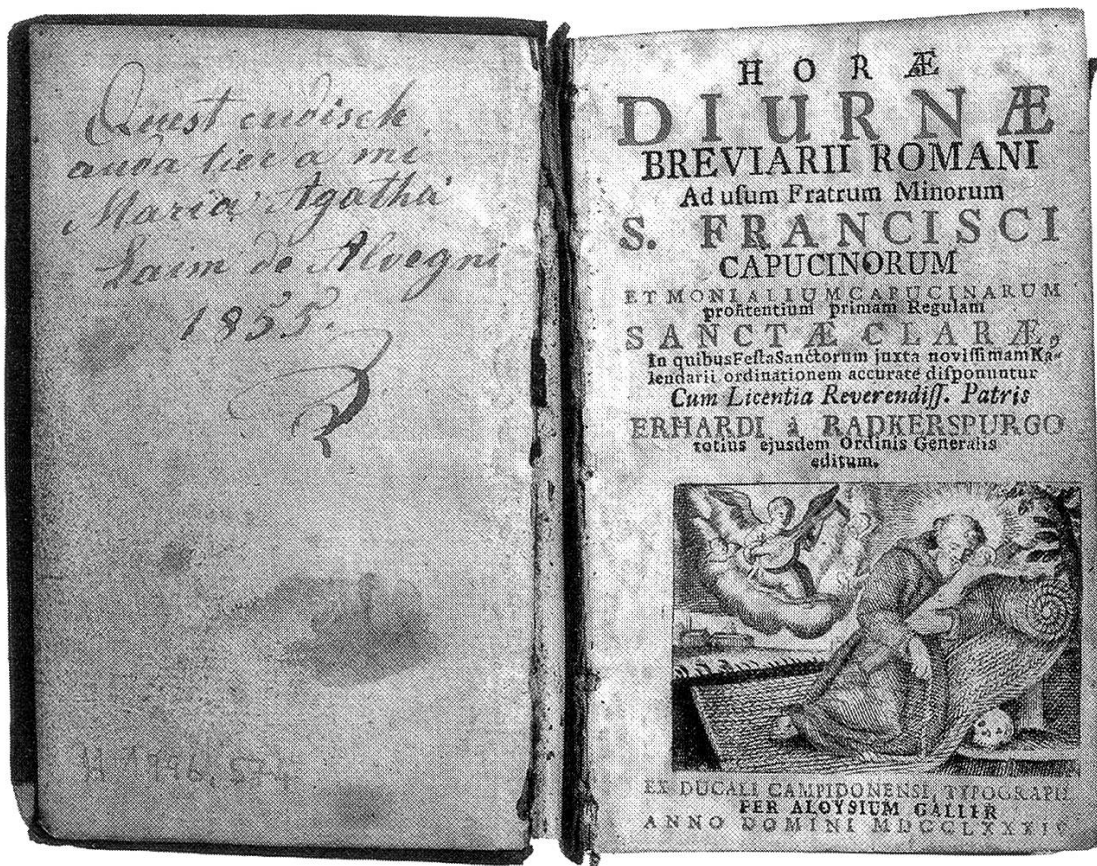 Quest cudisch
auda tier a mi
Maria Agatha
Laim de Alvegni
1855.
H 1996.574
HORÆ
DIURNÆ
BREVIARII ROMANI
Ad uſum Fratrum Minorum
S. FRANCISCI
CAPUCINORUM
ET MONIALIUM CAPUCINARUM
profitentium primam Regulam
SANCTÆ CLARÆ,
In quibus Feſta Sanctorum juxta noviſſimam Ka-
lendarii ordinationem accurate diſponuntur
Cum Licentia Reverendiſſ. Patris
ERHARDI à RADKERSPURGO
totius ejusdem Ordinis Generalis
editum.
EX DUCALI CAMPIDONENSI, TYPOGRAPH
PER ALOYSIUM GALLER
ANNO DOMINI MDCCLXXXIV